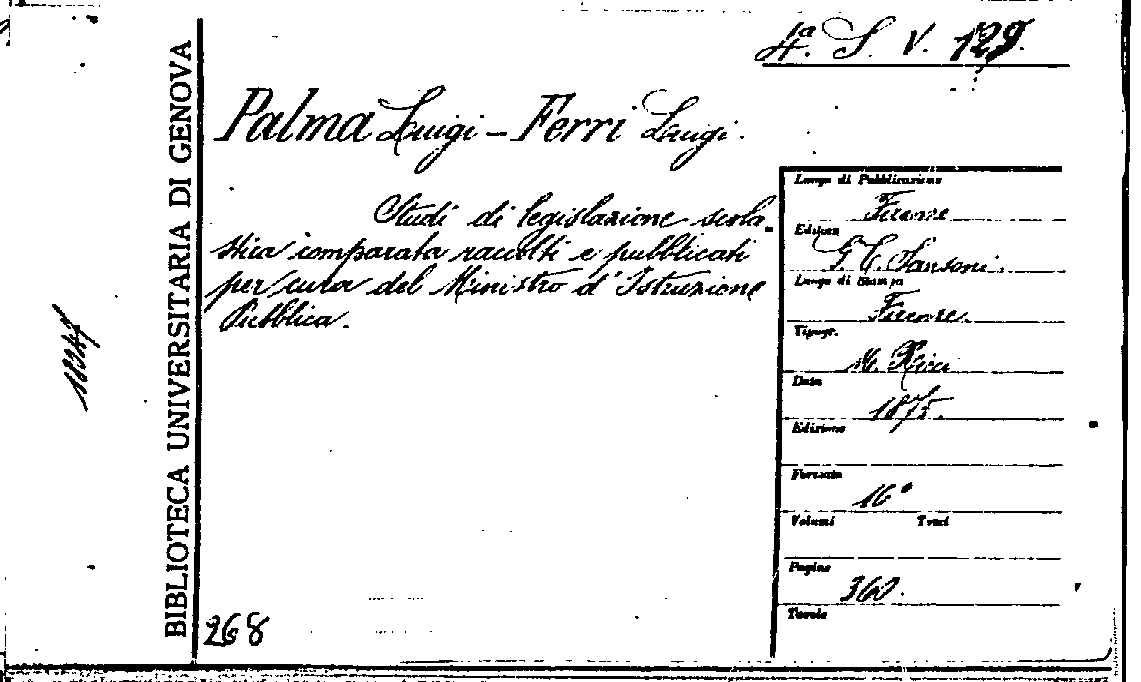 4ª. S. V. 129.
Palma Luigi - Ferri Luigi.
Studi di legislazione scola-
stica comparata raccolti e pubblicati
per cura del Ministro d'Istruzione
Pubblica.
Luogo di Pubblicazione
Firenze
Editore
G. C. Sansoni.
Luogo di Stampa
Firenze.
Tipogr.
M. Ricci
Data
1875.
Edizione
Formato
16°
Volumi Tomi
Pagine
360.
Tavole
268
BIBLIOTECA UNIVERSITARIA DI GENOVA